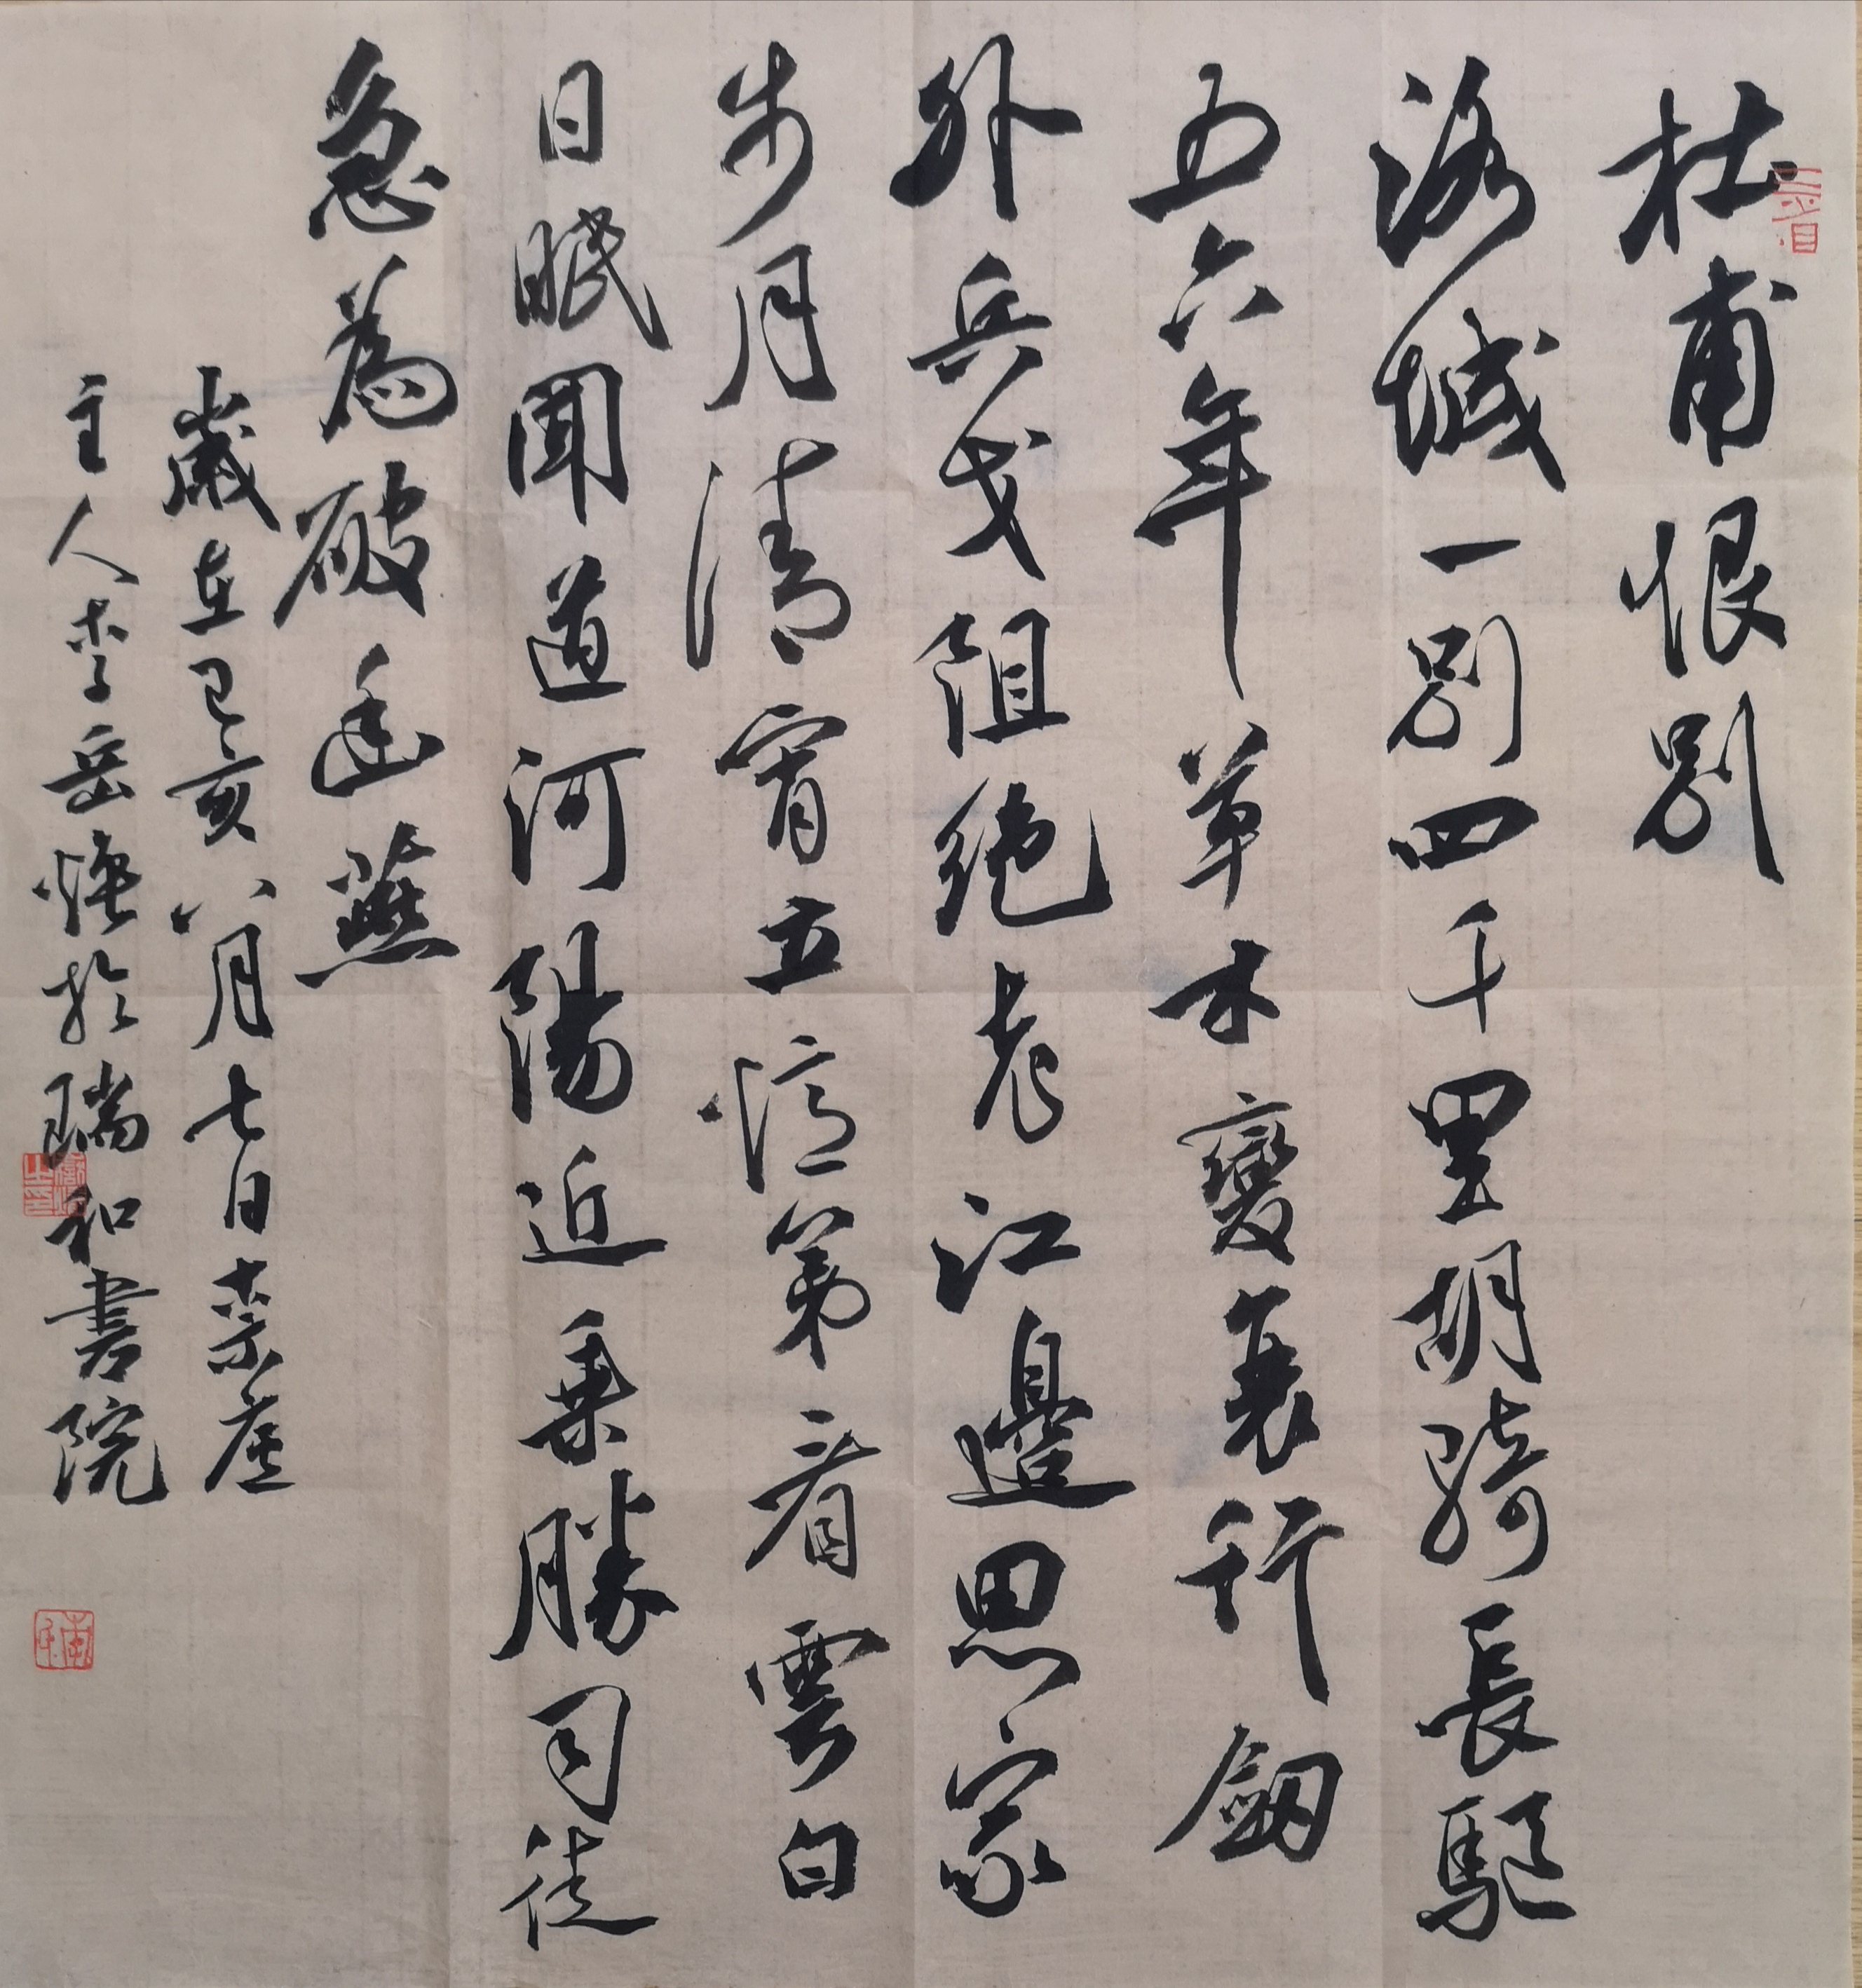 杜甫恨別
洛城一別四千里胡騎長驅
五六年草木變衰行劒
外兵戈阻絕老江邊思家
步月清宵立憶第看雲白
日眠聞道河陽近乘勝司徒
急為破幽燕
歲在己亥八月七日
主人李岳於瑞和書院